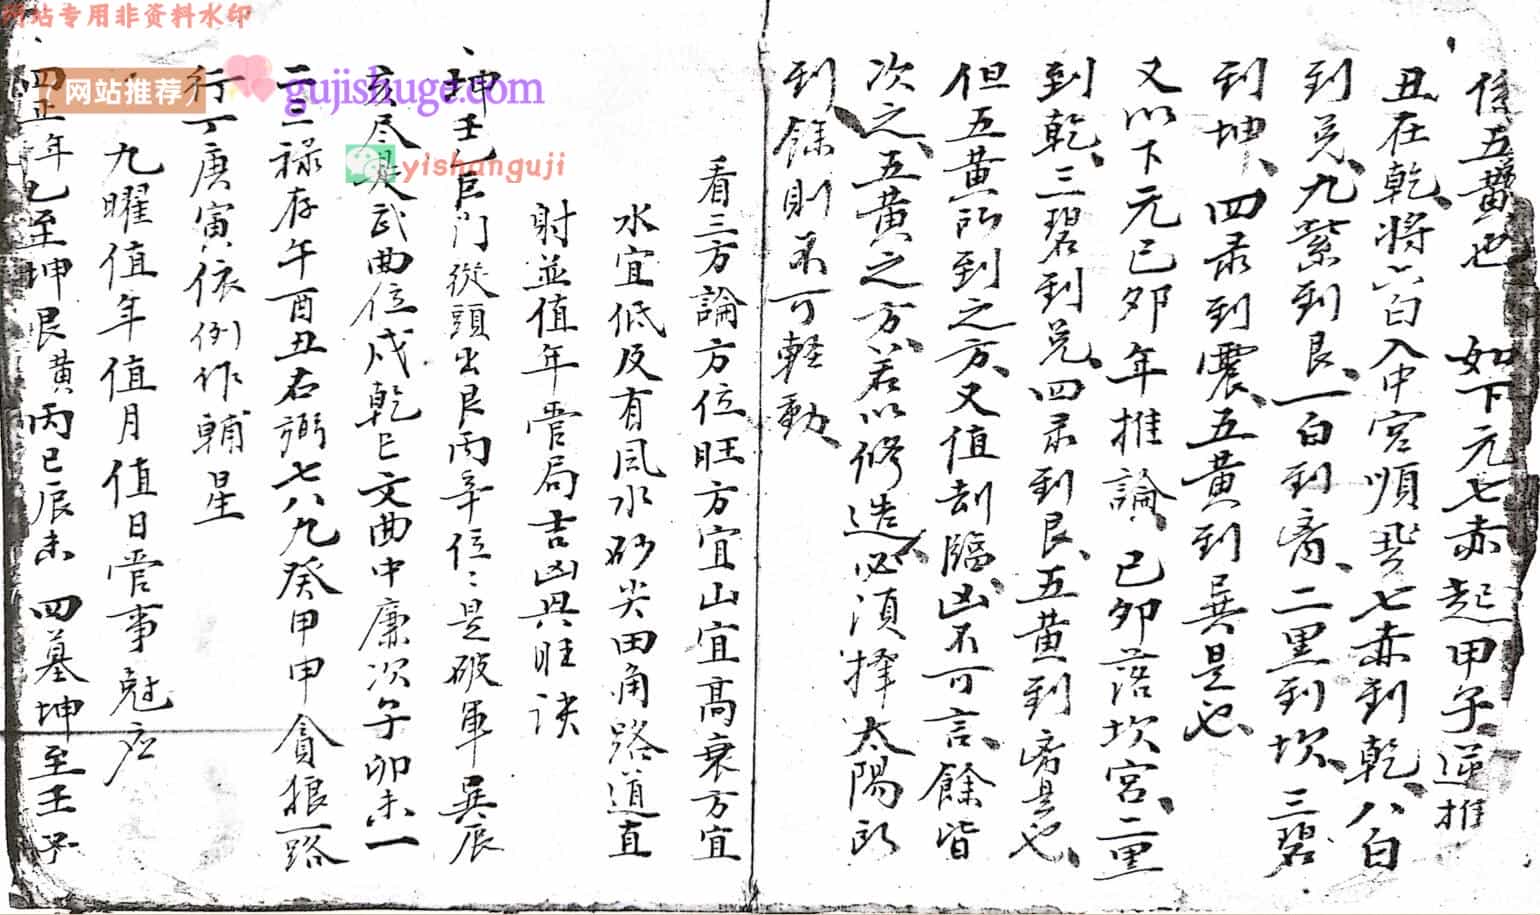 係五黃也　如下元七赤起甲子逆推
丑在乾將六白入中宮順飛七赤到乾八白
到兌九紫到艮一白到离二黑到坎三碧
到坤四彔到震五黃到巽是也
又以下元己卯年推論己卯落坎宮二黑
到乾三碧到兌四彔到艮五黃到离是也
但五黃所到之方又值刼臨凶不可言餘皆
次之五黃之方若以修造必須擇太陽所
到餘則不可輕動
看三方論方位旺方宜山宜高衰方宜
水宜低反有風水砂尖田角路道直
射並值年管局吉凶興旺訣
坤壬乙巨門從頭出艮丙辛位位是破軍巽辰
亥尽是武曲位戍乾巳文曲中廉次子卯未一
二三祿存午酉丑右弼七八九癸甲申貪狼一路
行丁庚寅依例作輔星
九曜值年值月值日管事尅应
四正年乙至坤艮黃丙巳辰未　四墓坤至壬子
网站专用非资料水印
网站推荐
gujishuge.com
yishanguji